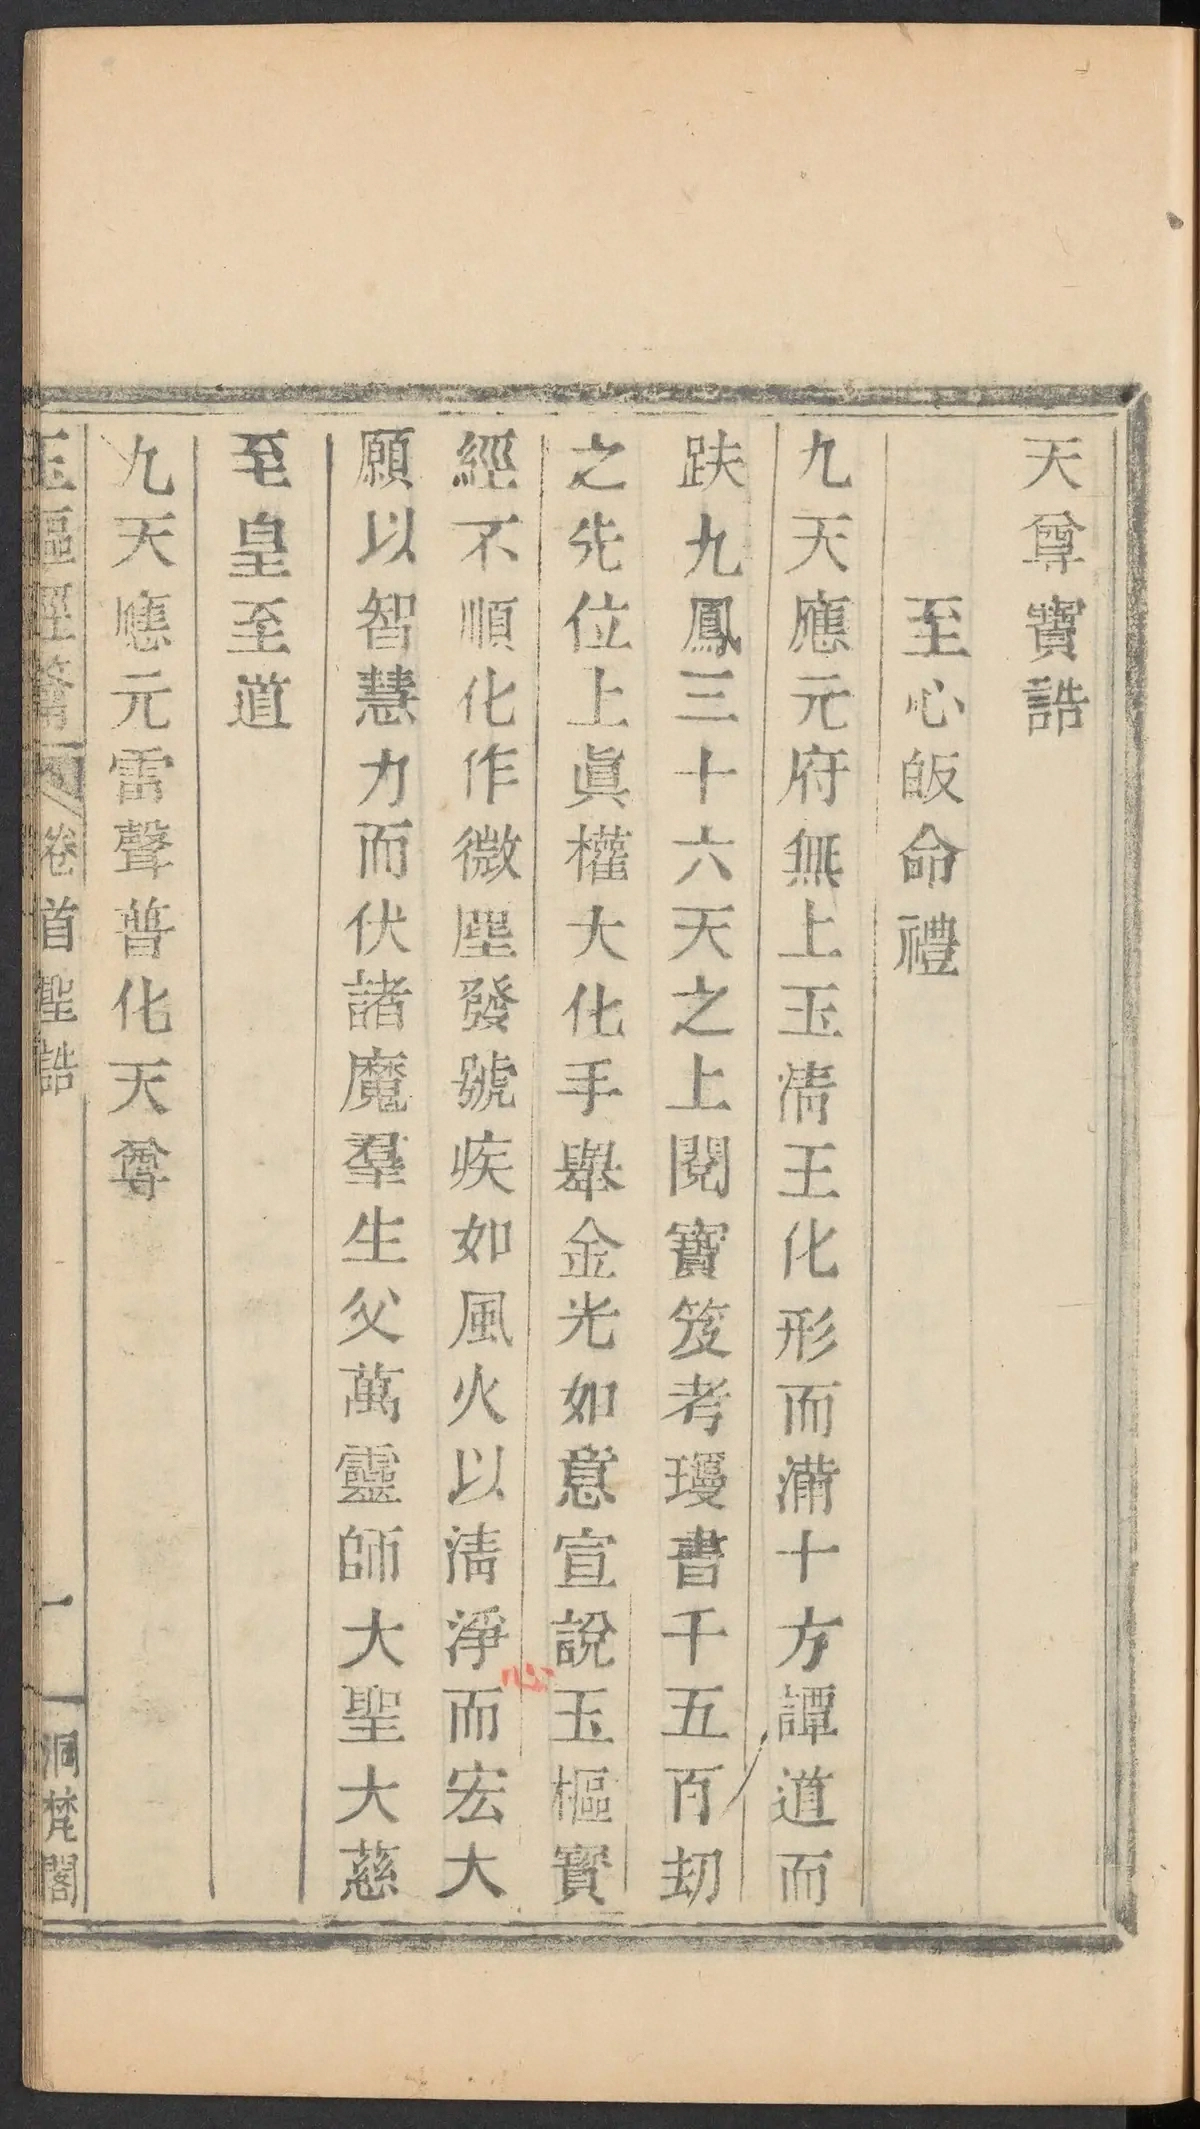 天尊寶誥
至心皈命禮
九天應元府無上玉淸王化形而滿十方譚道而
趺九鳳三十六天之上閱寶笈考瓊書千五百劫
之先位上眞權大化手舉金光如意宣說玉樞寶
經不順化作微塵發號疾如風火以淸淨而宏大
心
願以智慧力而伏諸魔羣生父萬靈師大聖大慈
至皇至道
九天應元雷聲普化天尊
玉樞經籥
卷首聖誥
一
洞梵閣